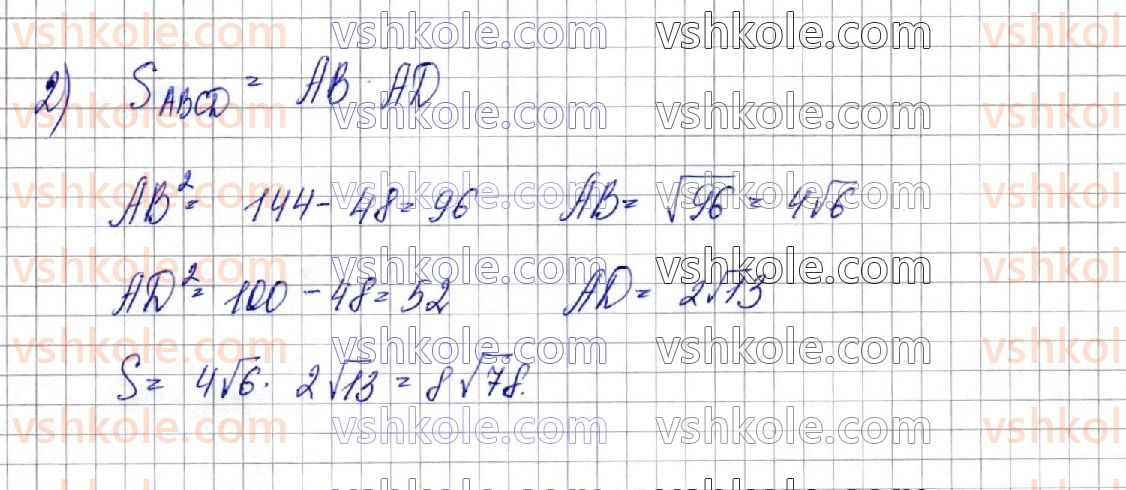 vshkole.com vshkole.com vshkole.com vshkol
2) S_ABCD = AB · AD
vshkole.com vshkole.com vshkole.com vshkol
AB² = 144 - 48 = 96 AB = √96 = 4√6
vshkole.com vshkole.com vshkole.com vshkol
AD² = 100 - 48 = 52 AD = 2√13
vshkole.com vshkole.com vshkole.com vshkol
S = 4√6 · 2√13 = 8√78.
vshkole.com vshkole.com vshkole.com vshkol
vshkole.com vshkole.com vshkole.com vshkol